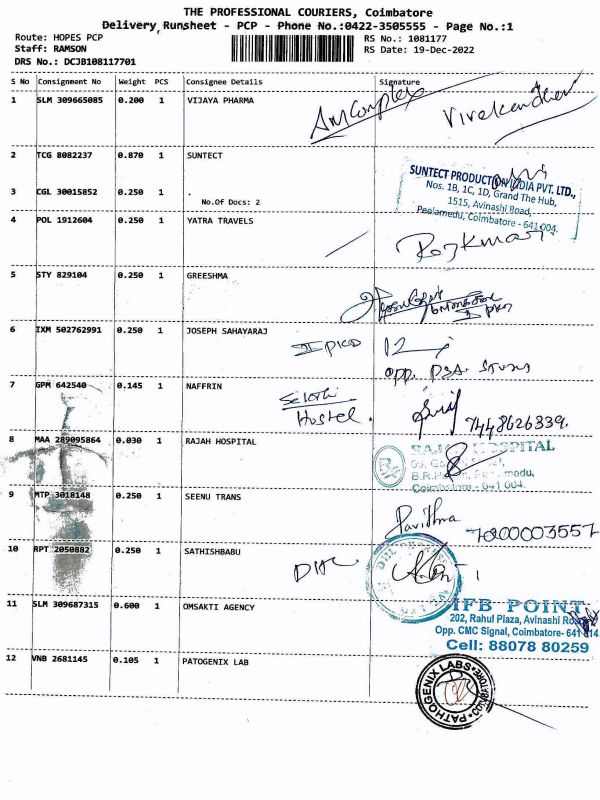 THE PROFESSIONAL COURIERS, Coimbatore
Delivery Runsheet - PCP - Phone No.:0422-3505555 - Page No.:1
Route: HOPES PCP
Staff: RAMSON
DRS No.: DCJB108117701
RS No.: 1081177
RS Date: 19-Dec-2022
S No Consignment No Weight PCS Consignee Details Signature
1 SLM 309665085 0.200 1 VIJAYA PHARMA
AM Complex
2 TCG 8082237 0.870 1 SUNTECT
SUNTECT PRODUCTION INDIA PVT. LTD.,
Nos. 1B, 1C, 1D, Grand The Hub,
1515, Avinashi Road,
Peelamedu, Coimbatore - 641 004.
3 CGL 30015852 0.250 1 .
No.Of Docs: 2
4 POL 1912604 0.250 1 YATRA TRAVELS
Rajkumar
5 STY 829104 0.250 1 GREESHMA
6 IXM 502762991 0.250 1 JOSEPH SAHAYARAJ
opp. PSA.
7 GPM 642540 0.145 1 NAFFRIN
Hostel.
7448626339.
8 MAA 289095864 0.030 1 RAJAH HOSPITAL
RAJAH HOSPITAL
Coimbatore - 641 004.
9 MTP 3018148 0.250 1 SEENU TRANS
Pavithra 7200003557
10 RPT 2050882 0.250 1 SATHISHBABU
11 SLM 309687315 0.600 1 OMSAKTI AGENCY
IFB POINT
202, Rahul Plaza, Avinashi Road
Opp. CMC Signal, Coimbatore- 641 014.
Cell: 88078 80259
12 VNB 2681145 0.105 1 PATOGENIX LAB
PATHOGENIX LABS
COIMBATORE